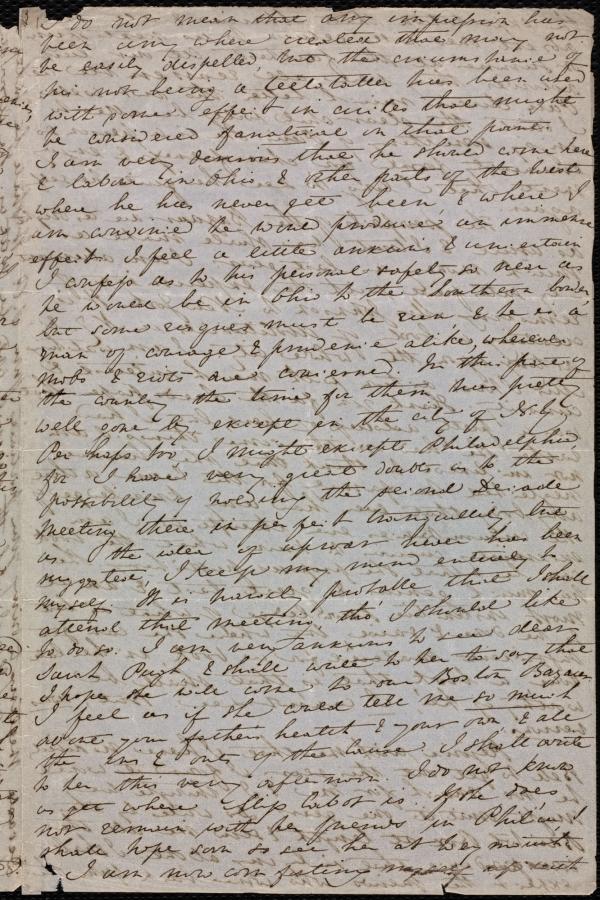 I do not mean that any impression has
been any where created that may not
be easily dispelled, but the circumstance of
his not being a teetotaller has been used
with some effect in circles that might
be considered fanatical on that point.
I am very desirous that he should come here
& labour in Ohio & other parts of the West
where he has never yet been & where I
am convinced he would produce an immense
effect. I feel a little anxious & uncertain
I confess as to his personal safety so near as
he would be in Ohio to the Southern border
but some risques must be run & he is a
man of courage & prudence alike, wherever
mobs & riots are concerned. In this part of
the country the time for them has pretty
well gone by except in the city of N.Y.
Perhaps too I might except Philadelphia
for I have very great doubts as to the
possibility of holding the second Decade
meeting there in perfect tranquillity but
as the idea of uproar never has been
suggested, I keep my mind entirely to
myself. It is hardly probable that I shall
attend that meeting, tho' I should like
to do so. I am very anxious to see dear
Sarah Pugh & shall write to her to say that
I hope she will come to our Boston Bazaar
I feel as if she could tell me so much
about your father's health & your own & all
the ins & outs of the cause. I shall write
to her this very afternoon. I do not know
as yet where Miss Cabot is. If she does
not remain with her friends in Phila I
shall hope soon to see her at Weymouth.
I am now comforting myself as